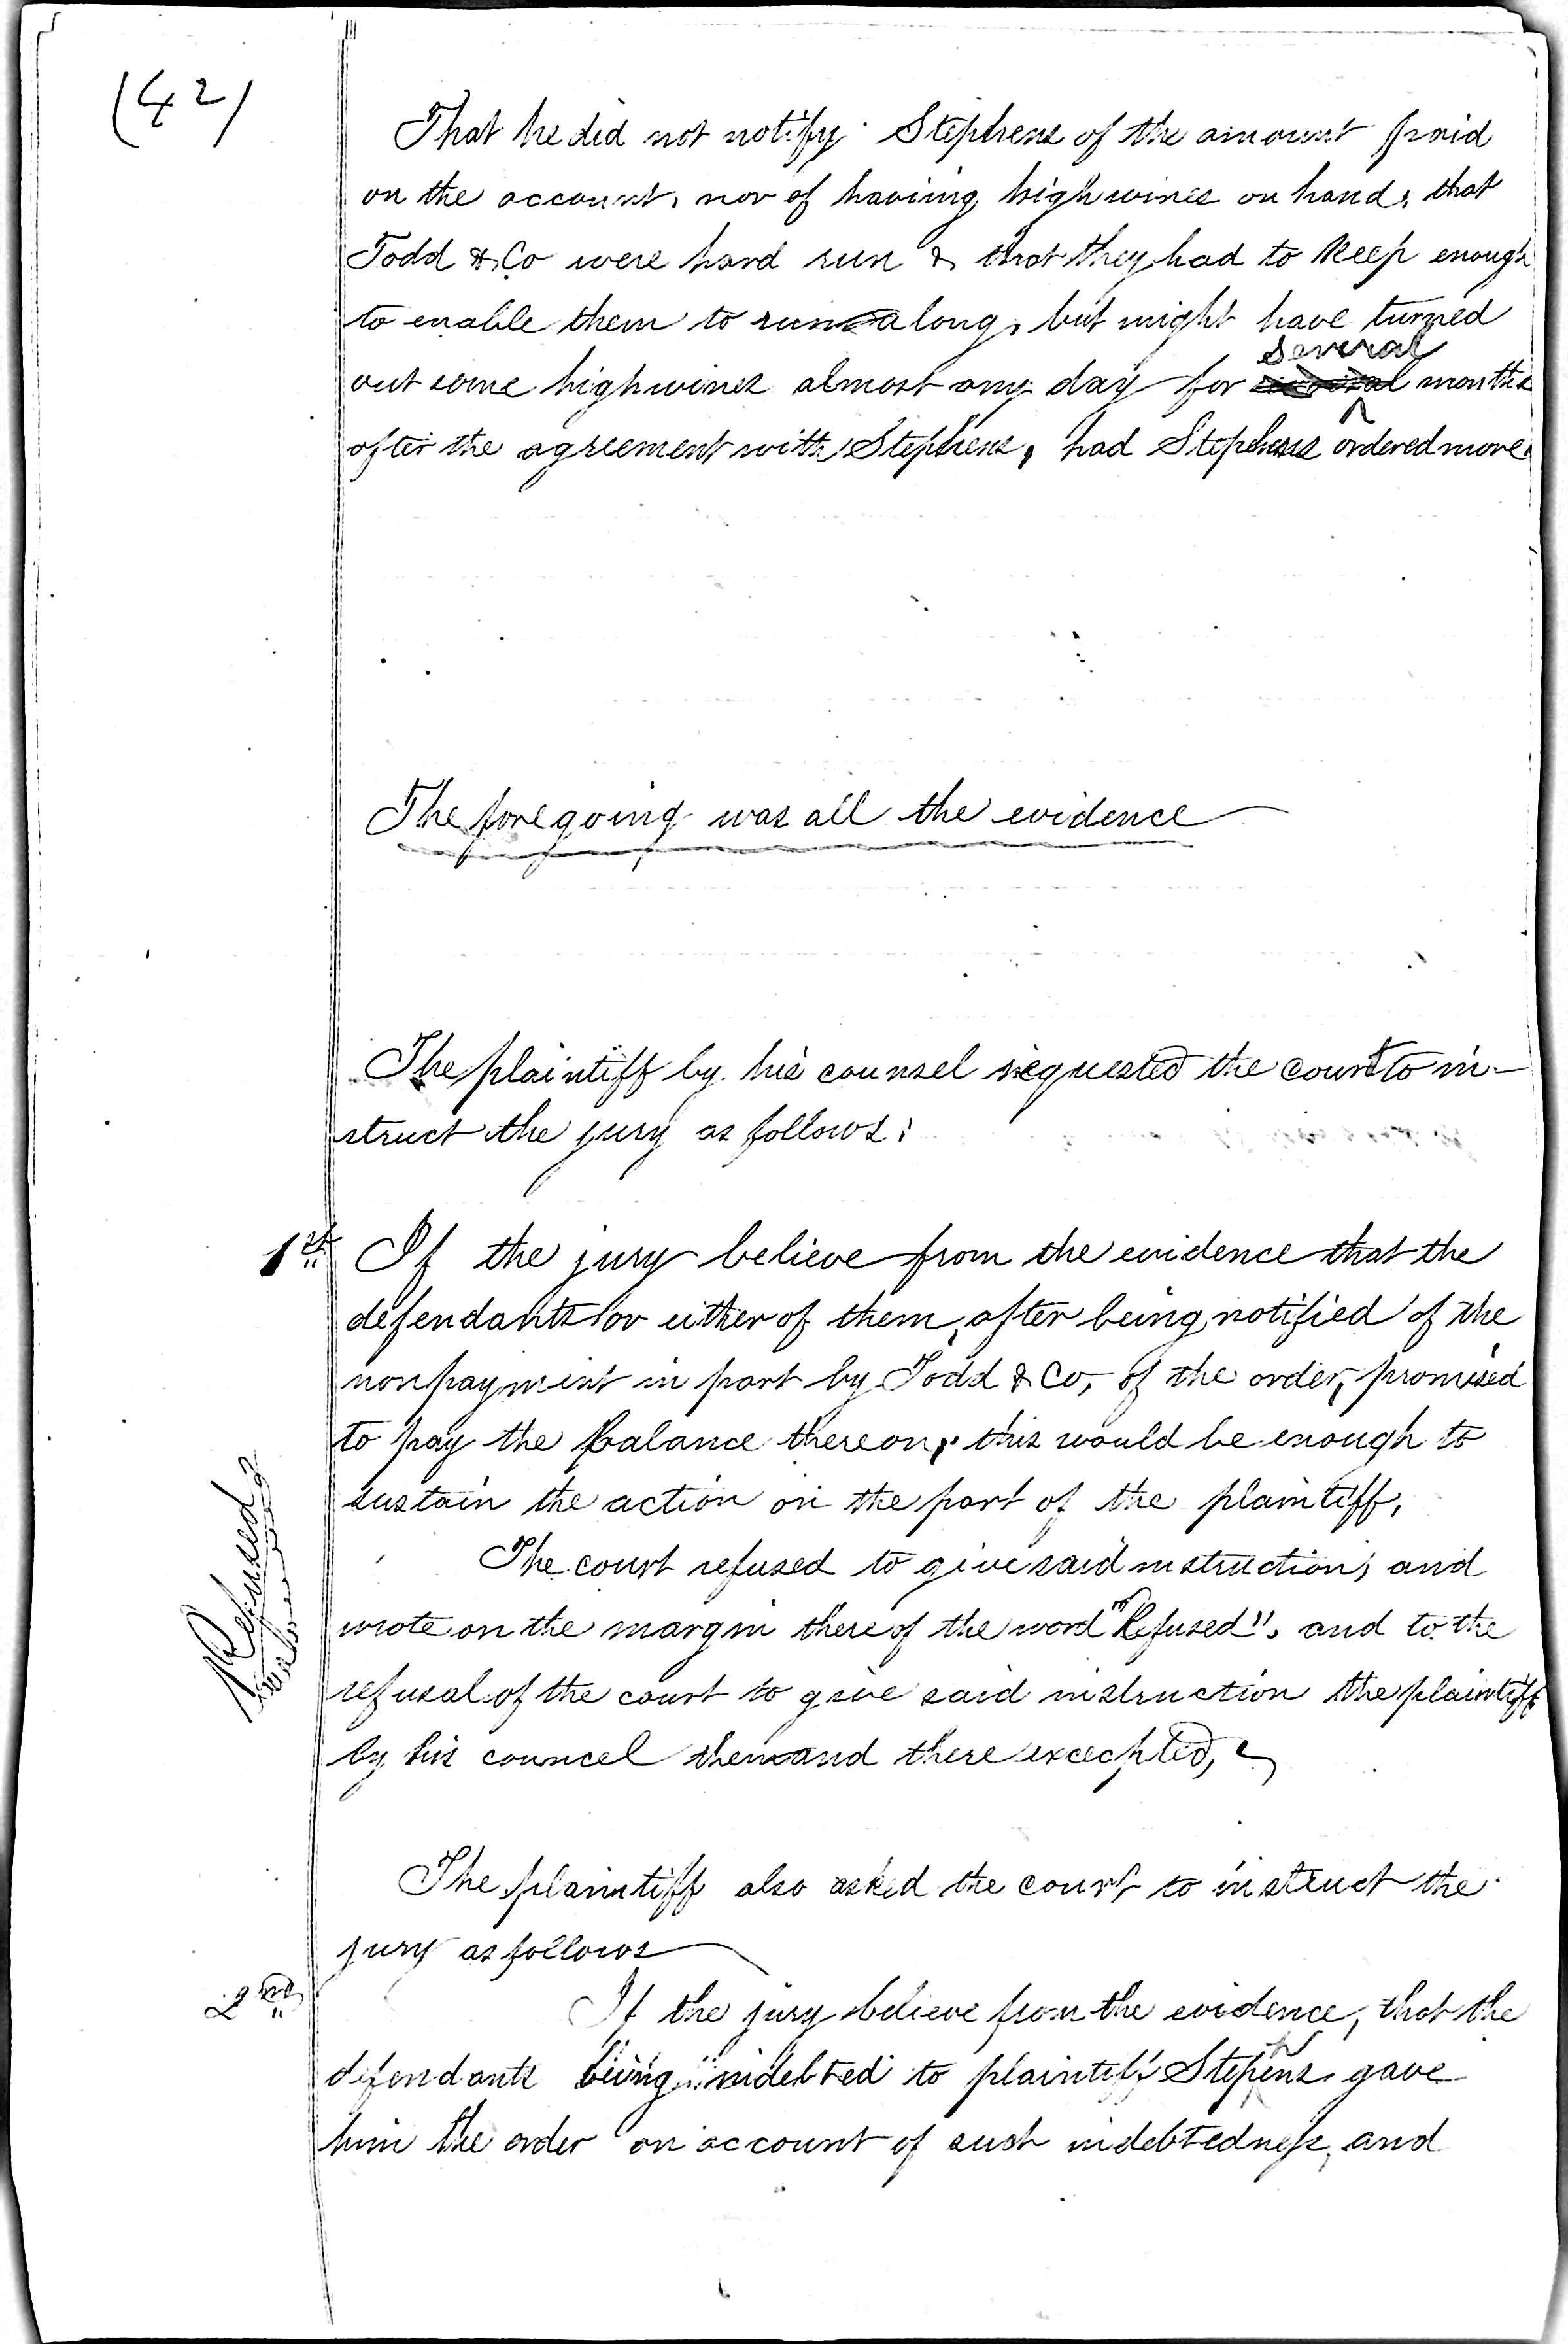 (42)
That he did not notify Stephens of the amount paid
on the account, nor of having highwines on hand, that
Todd & Co were hard run & that they had to keep enough
to enable them to run along, but might have turned
several
out some highwines almost any day for several months
after the agreement with Stephens, had Stephens ordered more.
The foregoing was all the evidence
The plaintiff by his counsel requested the court to in-
struct the jury as follows:
1st If the jury believe from the evidence that the
defendants or either of them, after being notified of the
nonpayment in part by Todd & Co, of the order, promised
to pay the balance thereon, this would be enough to
sustain the action on the part of the plaintiff,
The court refused to give said instruction, and
wrote on the margin thereof the word "Refused", and to the
refusal of the court to give said instruction the plaintiff
by his councel then and there excepted,
Refused
The plaintiff also asked the court to instruct the
jury as follows
2nd If the jury believe from the evidence, that the
defendants being indebted to plaintiff Stephens gave
him the order on account of such indebtedness, and